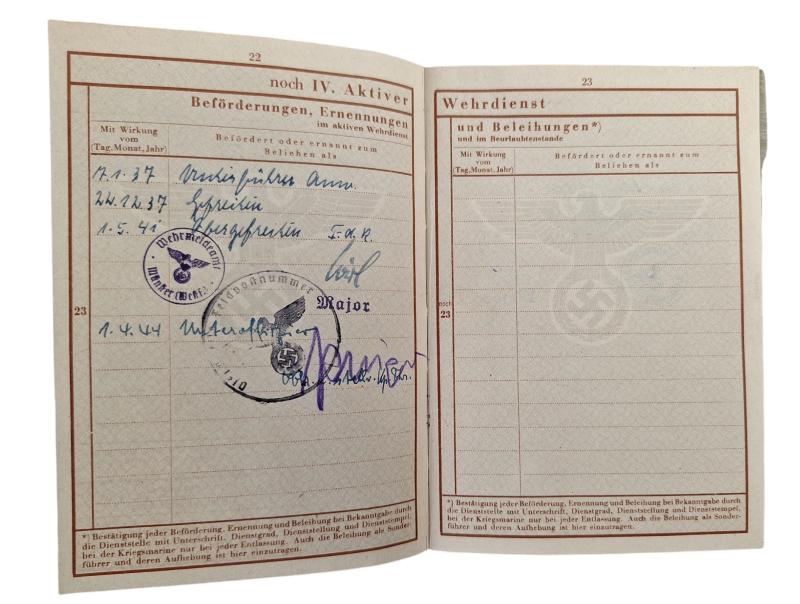 22
noch IV. Aktiver
Beförderungen, Ernennungen
im aktiven Wehrdienst
Mit Wirkung
vom
(Tag, Monat, Jahr)
Befördert oder ernannt zum
Beliehen als
7.1.37
22.12.37 Gefreiten
1.5.41 Obergefreiten I.d.R.
Wehrmeldeamt
Münster (Westf.)
Feldpostnummer
Major
23
1.4.44 Unteroffizier
*) Bestätigung jeder Beförderung, Ernennung und Beleihung bei Bekanntgabe durch
die Dienststelle mit Unterschrift, Dienstgrad, Dienststellung und Dienststempel,
bei der Kriegsmarine nur bei jeder Entlassung. Auch die Beleihung als Sonder-
führer und deren Aufhebung ist hier einzutragen.
23
Wehrdienst
und Beleihungen*)
und im Beurlaubtenstande
Mit Wirkung
vom
(Tag, Monat, Jahr)
Befördert oder ernannt zum
Beliehen als
noch
23
*) Bestätigung jeder Beförderung, Ernennung und Beleihung bei Bekanntgabe durch
die Dienststelle mit Unterschrift, Dienstgrad, Dienststellung und Dienststempel,
bei der Kriegsmarine nur bei jeder Entlassung. Auch die Beleihung als Sonder-
führer und deren Aufhebung ist hier einzutragen.